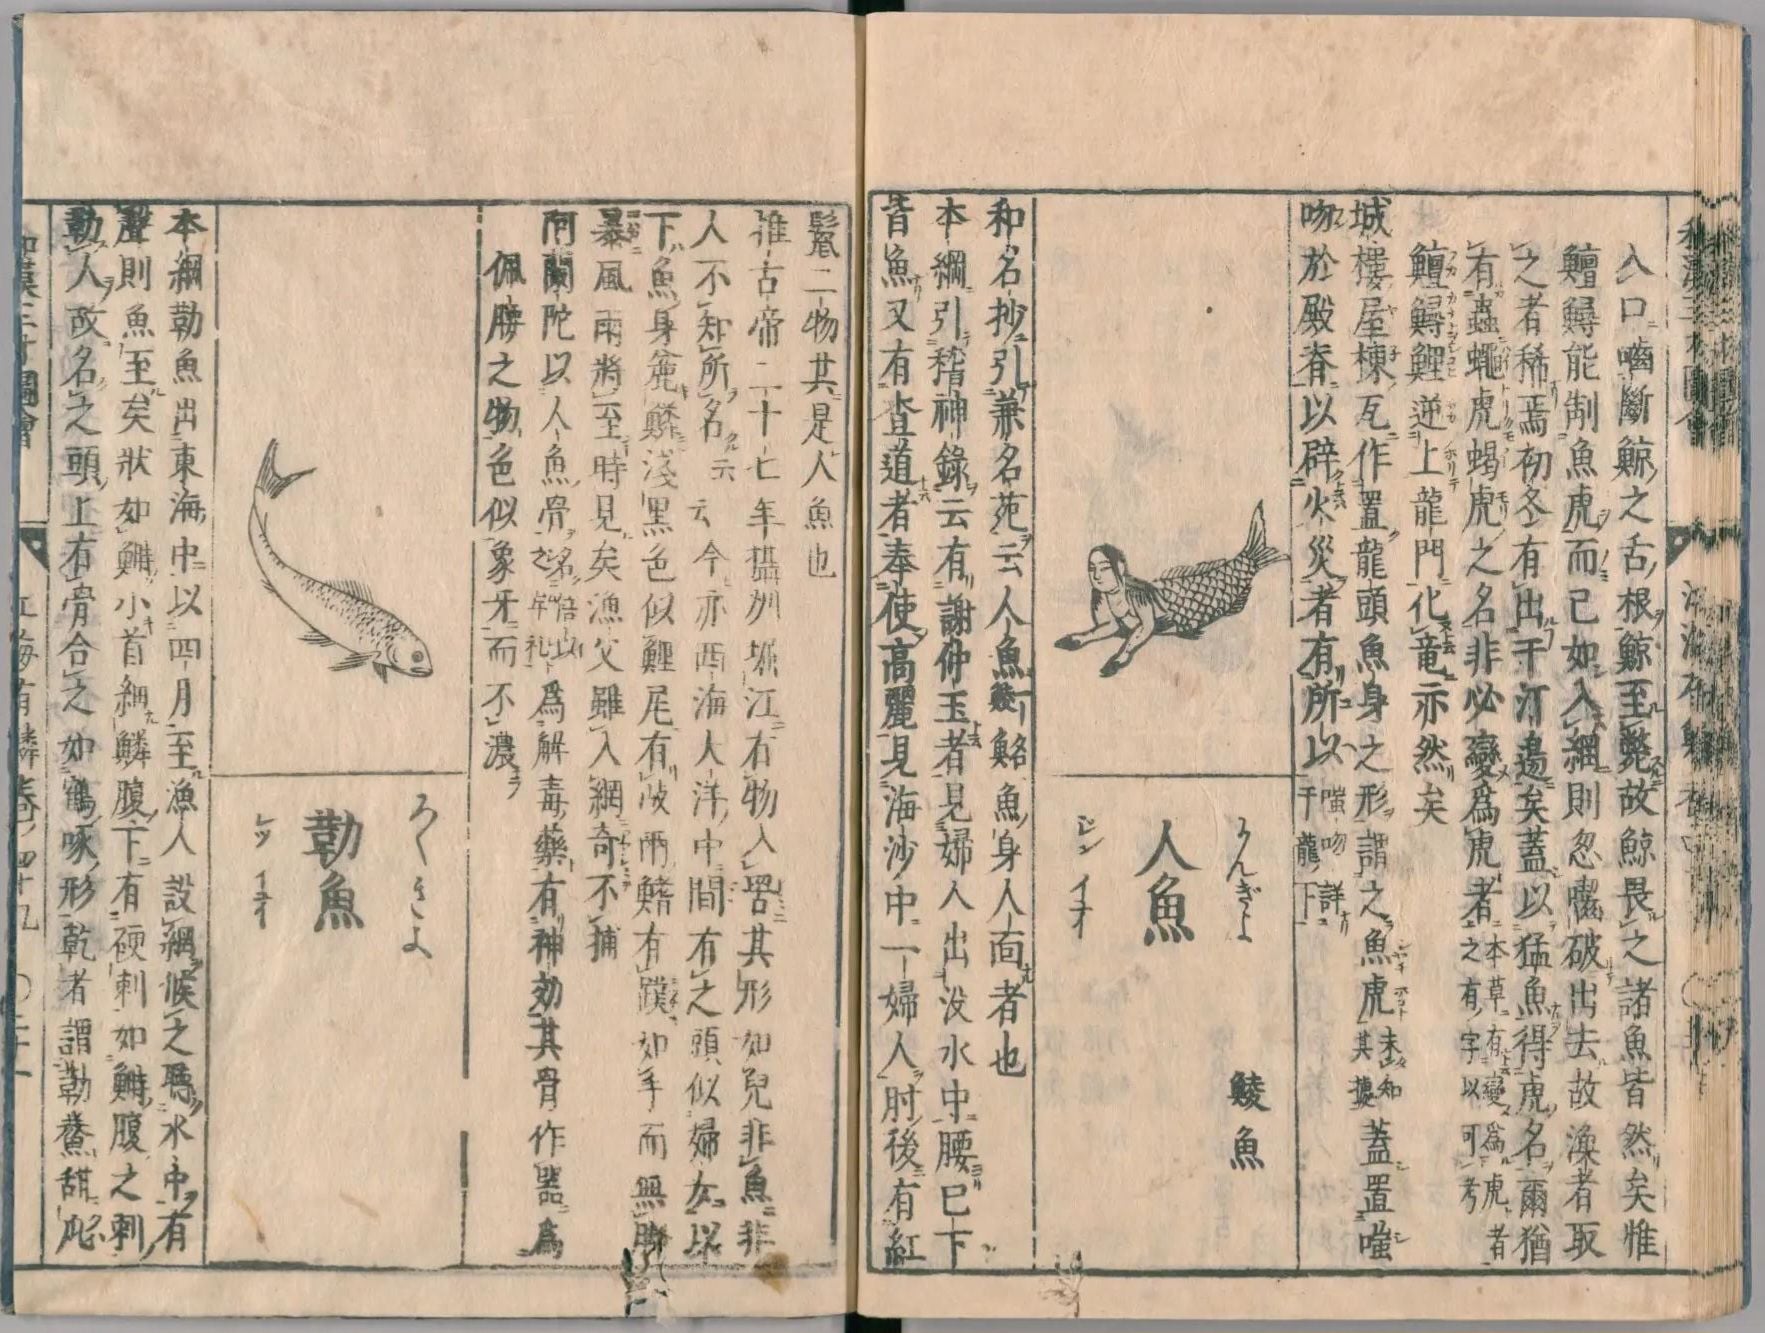 入口嚙斷鯨之舌根鯨至斃故鯨畏之諸魚皆然矣惟
鱣鱘能制魚虎而已如入網則忽囓破出去故漁者取
之者稀焉初冬有出于汀邊矣蓋以猛魚得虎名爾猶
有蟲蠅虎蝎虎之名非必變爲虎者本草有變爲虎者之有字以可考
鱣鱘鯉逆上龍門化竜亦然矣
城樓屋棟瓦作置龍頭魚身之形謂之魚虎未知其據蓋置嗤
吻於殿脊以辟火災者有所以嗤吻詳于龍下
にんぎよ
人魚
ジン イヲ
鯪魚
和名抄引兼名苑云人魚一名鯪魚身人面者也
本綱引稽神錄云有謝仲玉者見婦人出没水中腰已下
皆魚又有査道者奉使高麗見海沙中一婦人肘後有紅
鬣二物其是人魚也
推古帝二十七年攝州堀江有物入罟其形如兒非魚非
人不知所名云云今亦西海大洋中間有之頭似婦女以
下魚身麁鱗淺黒色似鯉尾有岐兩鰭有蹼如手而無脚
暴風雨將至時見矣漁父雖入網奇不捕
阿蘭陀以人魚骨爲解毒藥有神効其骨作器爲
佩腰之物色似象牙而不濃
ろくぎよ
勒魚
レツ イヲ
本綱勒魚出東海中以四月至漁人設網候之聽水中有
聲則魚至矣狀如鰣小首細鱗腹下有硬刺如鰣腹之刺
勒人故名之頭上有骨合之如鶴啄形乾者謂勒鯗甜瓜